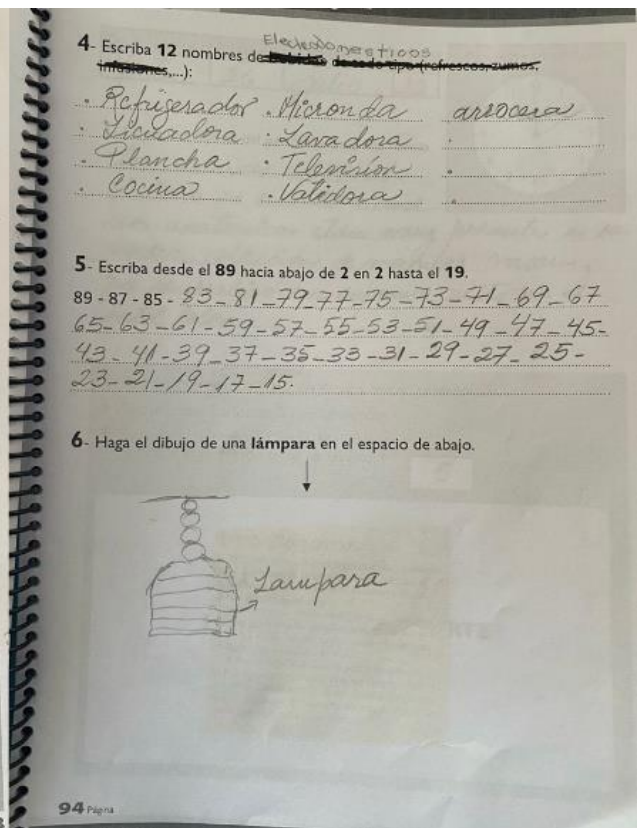 4- Escriba 12 nombres de bebidas de todo tipo (refrescos, zumos,
Electrodomesticos
infusiones,...):
. Refrigerador . Microonda arrocera
. Licuadora . Lavadora .
. Plancha . Televisión .
. Cocina . Vatidora .
5- Escriba desde el 89 hacia abajo de 2 en 2 hasta el 19.
89 - 87 - 85 - 83 - 81 - 79 - 77 - 75 - 73 - 71 - 69 - 67
65 - 63 - 61 - 59 - 57 - 55 - 53 - 51 - 49 - 47 - 45 -
43 - 41 - 39 - 37 - 35 - 33 - 31 - 29 - 27 - 25 -
23 - 21 - 19 - 17 - 15.
6- Haga el dibujo de una lámpara en el espacio de abajo.
Lampara
94 Página